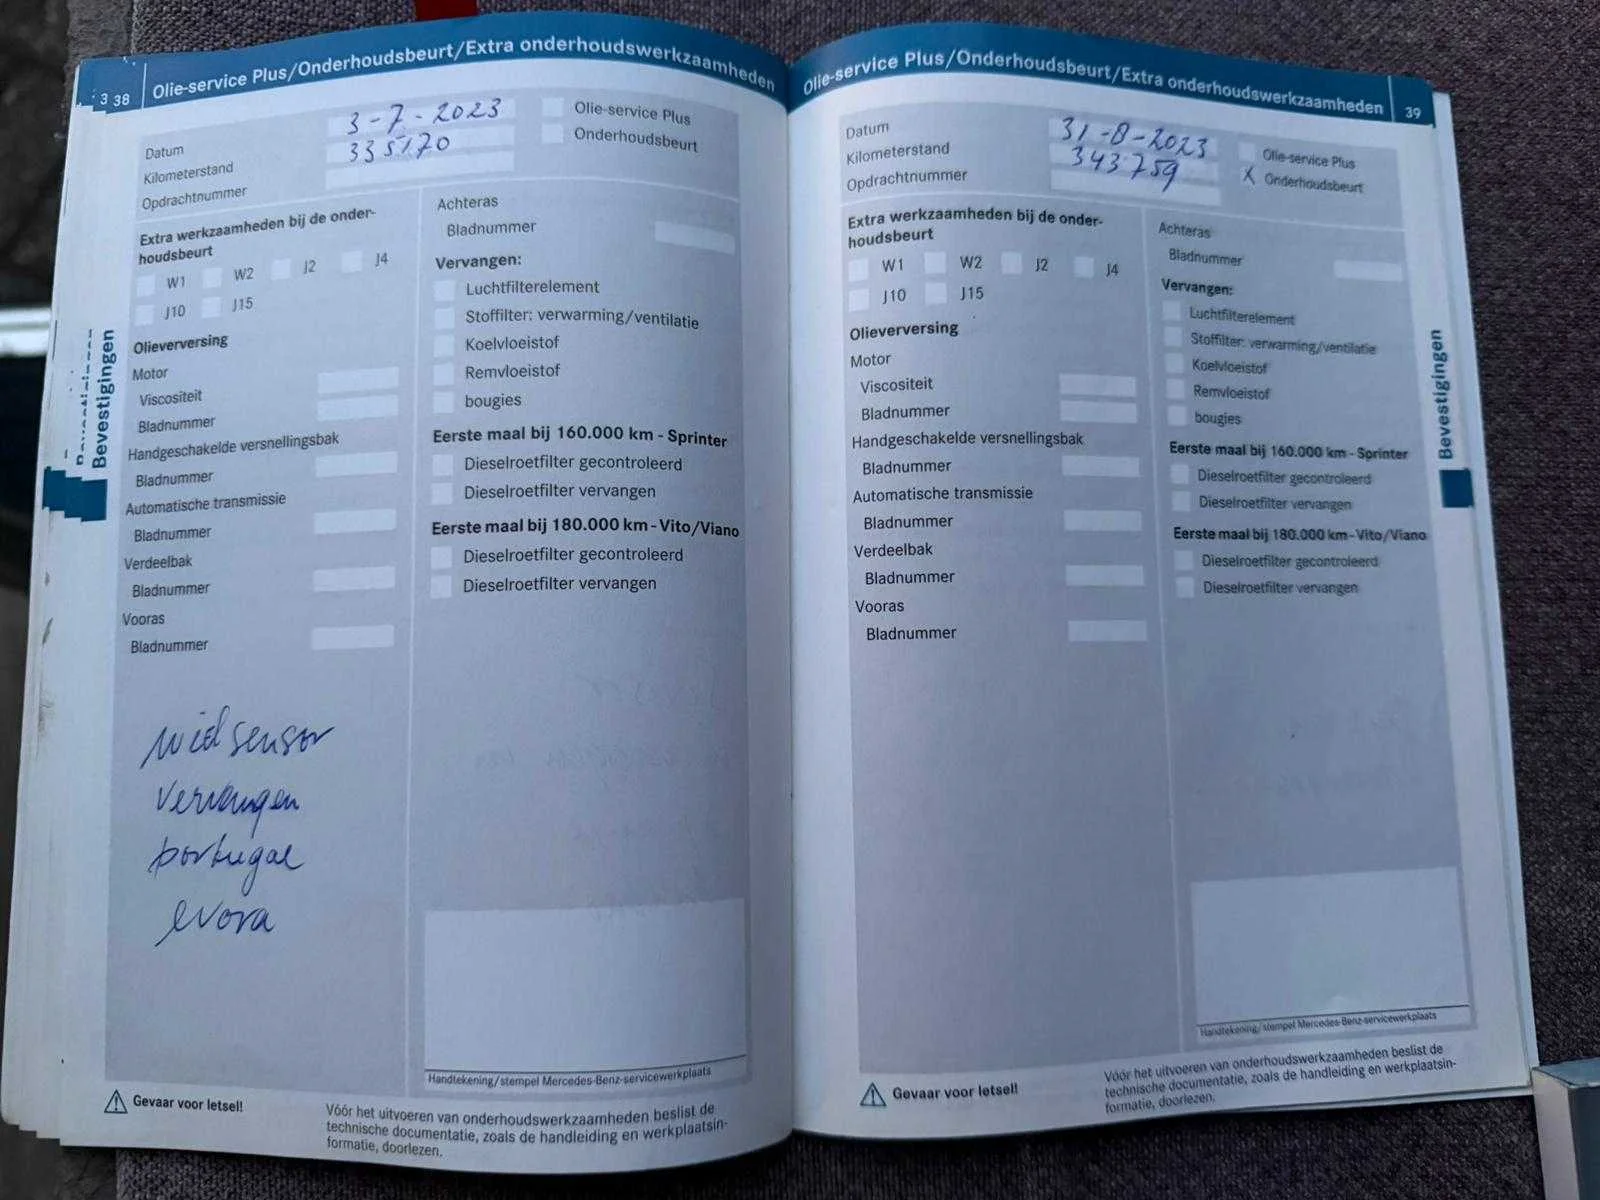 3 38
Olie-service Plus/Onderhoudsbeurt/Extra onderhoudswerkzaamheden
Datum
3-7-2023
Kilometerstand
335170
Opdrachtnummer
Olie-service Plus
Onderhoudsbeurt
Extra werkzaamheden bij de onder-
houdsbeurt
W1 W2 J2 J4
J10 J15
Olieverversing
Motor
Viscositeit
Bladnummer
Handgeschakelde versnellingsbak
Bladnummer
Automatische transmissie
Bladnummer
Verdeelbak
Bladnummer
Vooras
Bladnummer
Achteras
Bladnummer
Vervangen:
Luchtfilterelement
Stoffilter: verwarming/ventilatie
Koelvloeistof
Remvloeistof
bougies
Eerste maal bij 160.000 km - Sprinter
Dieselroetfilter gecontroleerd
Dieselroetfilter vervangen
Eerste maal bij 180.000 km - Vito/Viano
Dieselroetfilter gecontroleerd
Dieselroetfilter vervangen
wielsensor
vervangen
portugal
evora
Handtekening/stempel Mercedes-Benz-servicewerkplaats
Gevaar voor letsel!
Vóór het uitvoeren van onderhoudswerkzaamheden beslist de
technische documentatie, zoals de handleiding en werkplaatsin-
formatie, doorlezen.
Bevestigingen
Olie-service Plus/Onderhoudsbeurt/Extra onderhoudswerkzaamheden
39
Datum
31-8-2023
Kilometerstand
343759
Opdrachtnummer
Olie-service Plus
X Onderhoudsbeurt
Extra werkzaamheden bij de onder-
houdsbeurt
W1 W2 J2 J4
J10 J15
Olieverversing
Motor
Viscositeit
Bladnummer
Handgeschakelde versnellingsbak
Bladnummer
Automatische transmissie
Bladnummer
Verdeelbak
Bladnummer
Vooras
Bladnummer
Achteras
Bladnummer
Vervangen:
Luchtfilterelement
Stoffilter: verwarming/ventilatie
Koelvloeistof
Remvloeistof
bougies
Eerste maal bij 160.000 km - Sprinter
Dieselroetfilter gecontroleerd
Dieselroetfilter vervangen
Eerste maal bij 180.000 km - Vito/Viano
Dieselroetfilter gecontroleerd
Dieselroetfilter vervangen
Handtekening/stempel Mercedes-Benz-servicewerkplaats
Gevaar voor letsel!
Vóór het uitvoeren van onderhoudswerkzaamheden beslist de
technische documentatie, zoals de handleiding en werkplaatsin-
formatie, doorlezen.
Bevestigingen